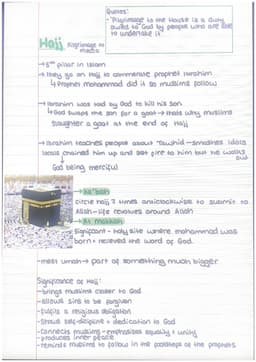 Quotes:
- "Pilgrimage to the House is a duty
owed to God by people who are able
to undertake it"
Hajj Pilgrimage to
mecca
→ 5th pillar in Islam
→ they go on Hajj to commerate prophet Ibrahim
↳ Prophet mohammad did it so muslims follow
→ Ibrahim was told by God to kill his son
↳ God swaps the son for a goat → thats why muslims
slaughter a goat at the end of Hajj
→ Ibrahim teaches people about Tawhid - smashes idols
locals chained him up and set fire to him but he walks
out
God being merciful
→ Ka'bah
circle hajj 7 times anticlockwise to submit to
Allah - life revolves around Allah
→ At makkah
significant - holy site where mohammad was
born + recieved the word of God.
- meet umah → part of something much bigger
Significance of Hajj:
- brings muslims closer to God
- allows sins to be forgiven
- fulfils a religious obligation
- Shows self-discipline + dedication to God
- Connects muslims - emphasises equality + unity
- produces inner peace
- reminds muslims to follow in the footsteps of the prophets.